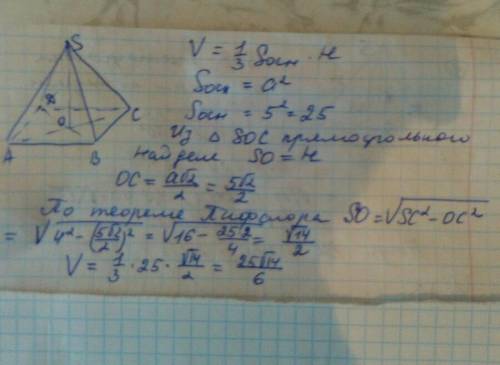 S
V = 1/3 Sосн · H
Sосн = a²
Sосн = 5² = 25
Из △ SOC прямоугольного
найдем SO = H
A B C O
OC = a√2/2 = 5√2/2
По теореме Пифагора SO = √(SC² - OC²)
= √(4² - (5√2/2)²) = √(16 - 25·2/4) = √14/2
V = 1/3 · 25 · √14/2 = 25√14/6